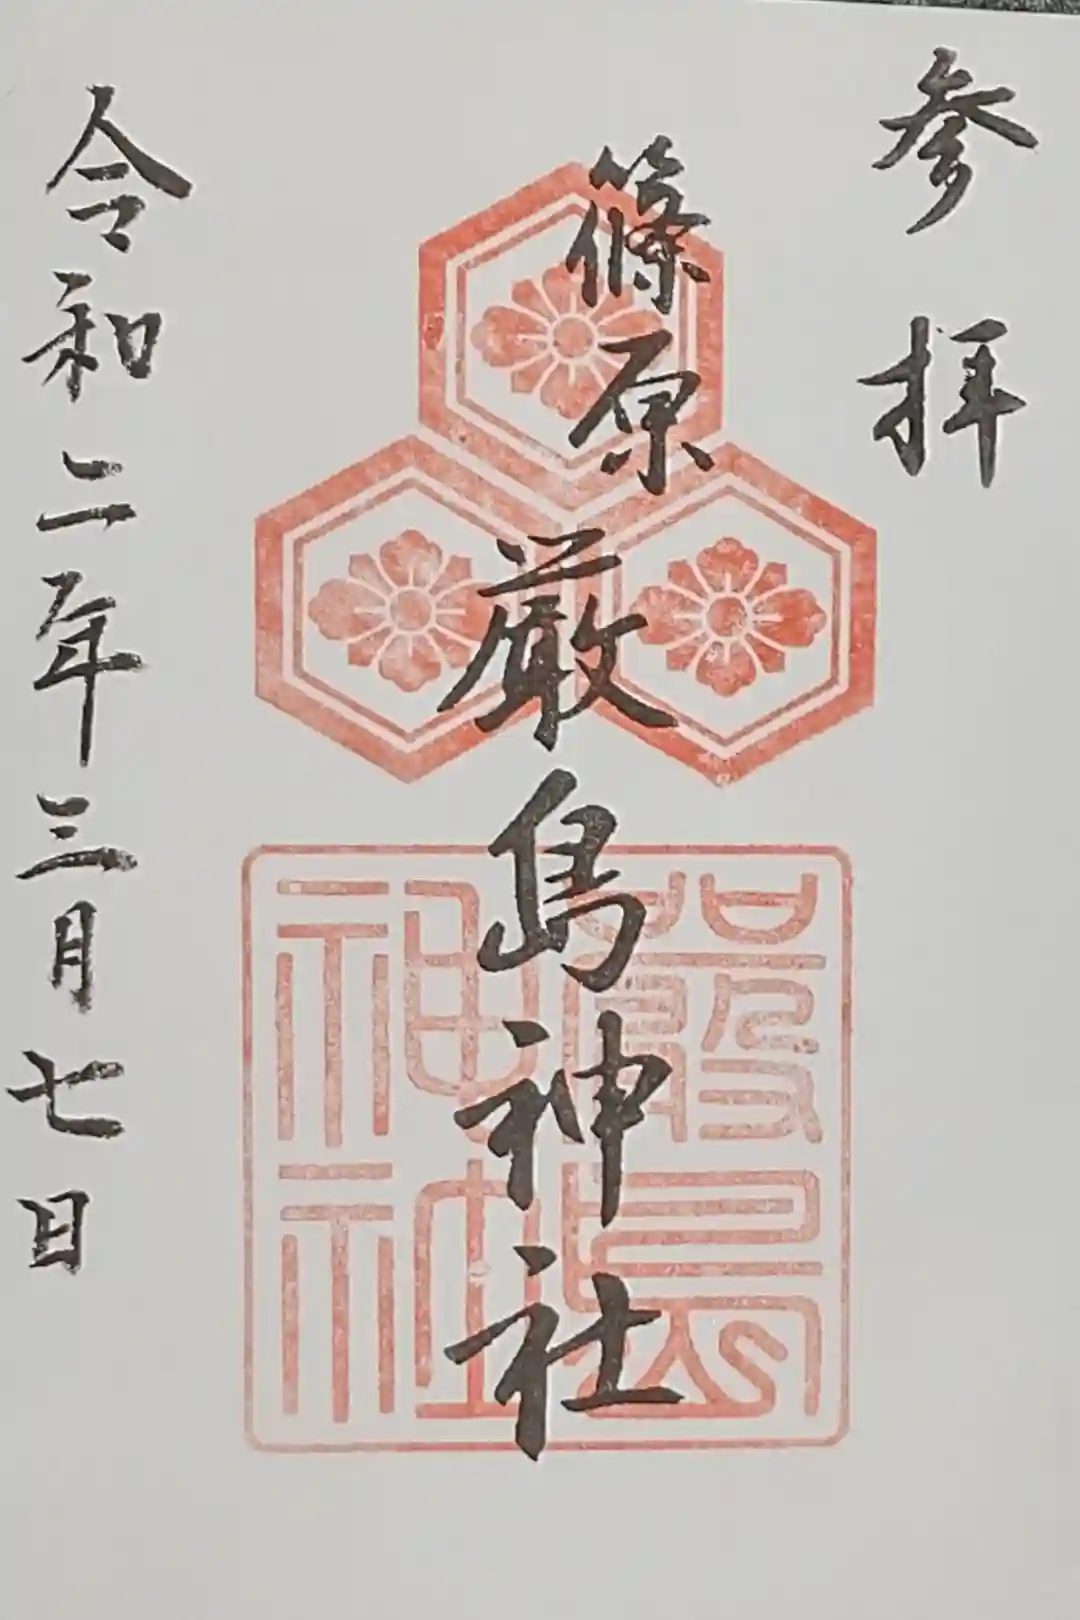 参拝
篠原
厳島神社
嚴島
神社
令和二年三月七日